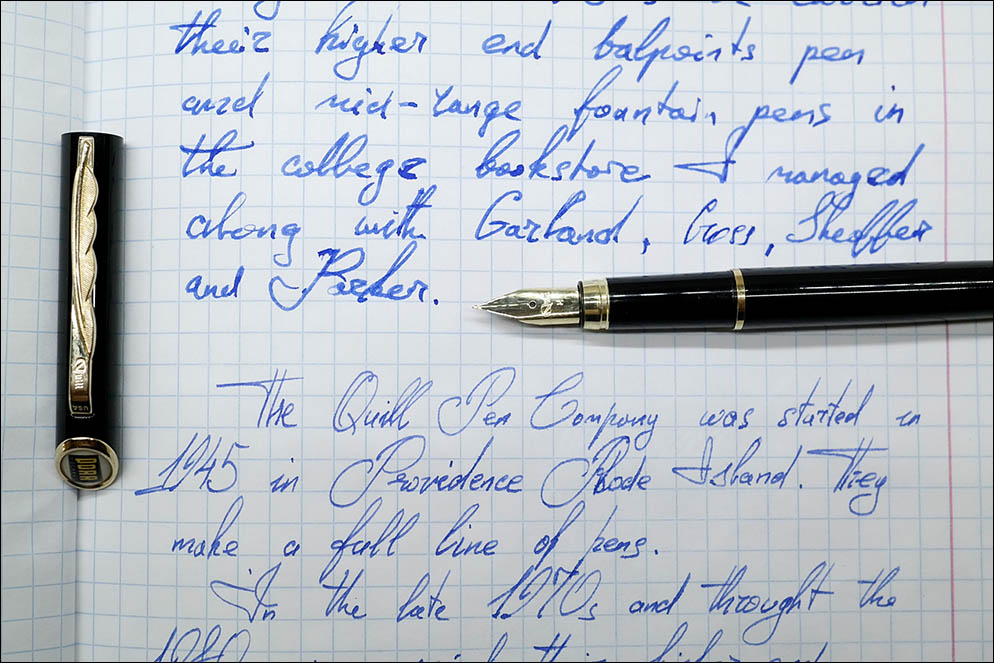 their higher end balpoints pen
and mid-range fountain pens in
the college bookstore I managed
along with Garland, Cross, Sheaffer
and Parker.
The Quill Pen Company was started in
1945 in Providence Rhode Island. They
make a full line of pens.
In the late 1970s and throught the
Quill
USA